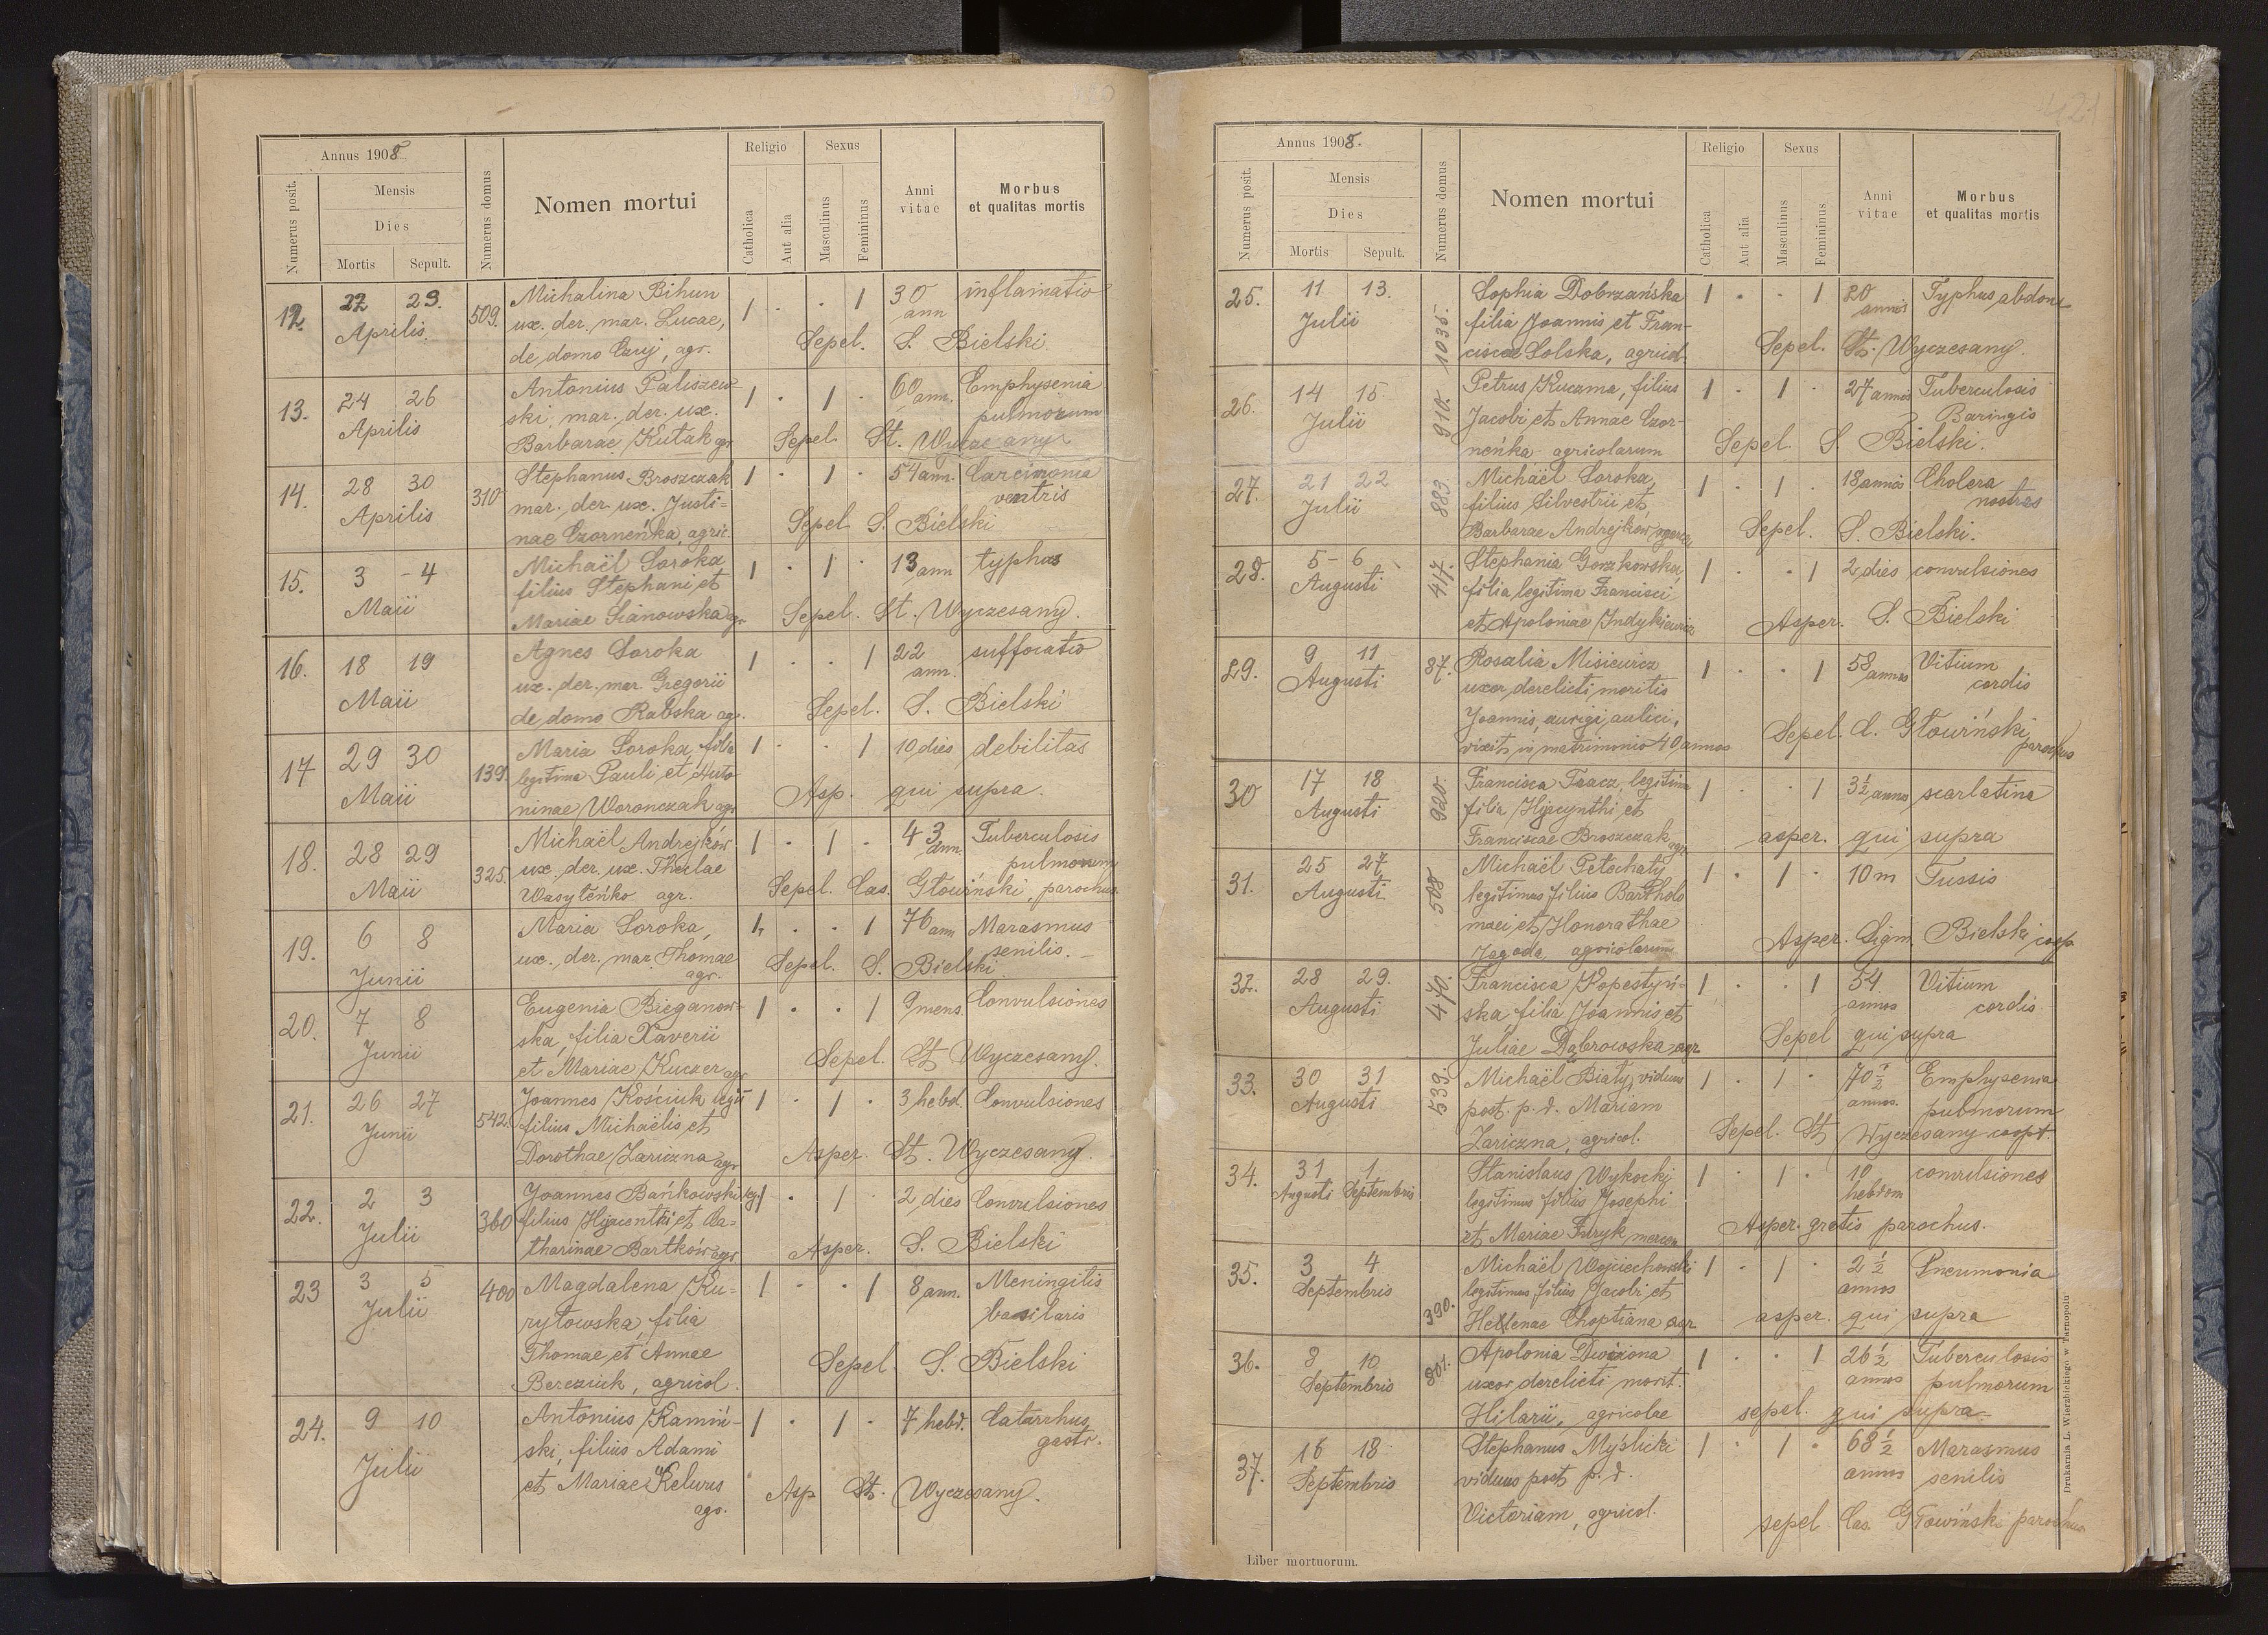 Annus 1908
Mensis
Dies
Numerus posit.
Mortis Sepult.
Numerus domus
Nomen mortui
Religio
Catholica
Aut alia
Sexus
Masculinus
Femininus
Anni vitae
Morbus
et qualitas mortis
12. 22 23. 509. Michalina Bihun 1 · · 1 30 inflamatio
Aprilis ux. der. mar. Lucae, ann
de domo Czuj, agr. Sepel. S. Bielski.
13. 24 26 Antonius Paliszew- 1 · 1 · 60 ann. Emphysenia
Aprilis ski, mar. der. ux. pulmorum
Barbarae Kutak agr Sepel. St. Wyczesany
14. 28 30 310 Stephanus Broszczak 1 · 1 · 54 ann. Carcinonia
Aprilis mar. der. ux. Justi= ventris
nae Czorneńka, agric. Sepel. S. Bielski
15. 3 - 4 Michaël Soroka 1 · 1 · 13 ann typhus
Maii filius Stephani et
Mariae Sianowska agr Sepel. St. Wyczesany.
16. 18 19 Agnes Soroka 1 · · 1 22 suffocatio
Maii ux. der. mar. Gregorii ann.
de domo Rabska agr. Sepel. S. Bielski
17 29 30 139. Maria Soroka, filia 1 · · 1 10 dies debilitas
Maii legitima Pauli et Anto
ninae Woronczak agr Asp. qui supra.
18. 28 29 325. Michaël Andrejków 1 · 1 · 43 ann. Tuberculosis
Maii ux. der. ux. Theclae pulmorum
Wasyleńko agr. Sepel. Cas. Głowiński, parochus.
19. 6 8 Maria Soroka, 1 · · 1 76 ann Marasmus
Junii ux. der. mar. Thomae senilis.
agr. Sepel. S. Bielski
20. 7 8 Eugenia Bieganow- 1 · · 1 9 mens. Convulsiones
Junii ska, filia Xaverii
et Mariae Kuczer agr Sepel. St Wyczesany.
21. 26 27 542. Joannes Kościuk legit 1 · 1 · 3 hebd. Convulsiones
Junii filius Michaëlis et
Dorothae Zariczna agr Asper. St. Wyczesany.
22. 2 3 360 Joannes Bańkowski leg. 1 · 1 · 2 dies Convulsiones
Julii filius Hyacinthi et Ca=
tharinae Bartków agr Asper. S. Bielski
23 3 5 400 Magdalena Ku= 1 · · 1 8 ann. Meningitis
Julii rytowska, filia basilaris
Thomae et Annae Sepel. S. Bielski
Bereziuk, agricol.
24. 9 10 Antonius Kamiń- 1 · 1 · 7 hebd. Catarrhus
Julii ski, filius Adami gastr.
et Mariae Kelwus
agr. Asp St. Wyczesany.
421
Annus 1908.
Mensis
Dies
Numerus posit.
Mortis Sepult.
Numerus domus
Nomen mortui
Religio
Catholica
Aut alia
Sexus
Masculinus
Femininus
Anni vitae
Morbus
et qualitas mortis
25. 11 13. 1035. Sophia Dobrzańska 1 · · 1 20 Typhus abdom
Julii filia Joannis et Fran- annos
ciscae Solska, agricol. Sepel. St. Wyczesany.
26. 14 15. 910. Petrus Kuczma, filius 1 · 1 · 27 annos Tuberculosis
Julii Jacobi et Annae Czor-
neńka agricolarum Sepel. S. Bielski.
27. 21 22 883. Michaël Soroka, 1 · 1 · 18 annos Cholera
Julii filius Silvestrii et nostras
Barbarae Andrejków Sepel. S. Bielski.
28. 5 - 6 417. Stephania Gorzkowska, 1 · · 1 2 dies convulsiones
Augusti filia legitima Francisci
et Apoloniae Indykiewicz Asper. S. Bielski
29. 9 11 87. Rosalia Misiewicz 1 · · 1 58 annos Vitium
Augusti uxor derelicti moritis cordis
Joannis, aurigi aulici,
vixit in matrimonio 40 annos Sepel. C. Głowiński parochus
30 17 18 920. Francisca Tracz, legitima 1 · · 1 3½ annos scarlatina
Augusti filia Hyacynthi et
Franciscae Broszczak agr asper. qui supra
31. 25 27 508 Michaël Petochaty 1 · 1 · 10 m Tussis
Augusti legitimus filius Bartholo
maei et Honorathae
Jagoda agricolarum Asper. Sigm. Bielski coop
32. 28 29. 470. Francisca Kopestyń- 1 · · 1 54. Vitium
Augusti ska filia Joannis et annos cordis
Juliae Dąbrowska agr Sepel qui supra
33. 30 31 539. Michaël Biały, viduus 1 · 1 · 70½ Emphysenia
Augusti post. p. d. Mariam annos. pulmorum
Zariczna, agricol. Sepel. St Wyczesany coopt.
34. 31 1 Stanislaus Wykocki 1 · 1 · 10 convulsiones
Augusti Septembris legitimus filius Josephi hebdom
et Mariae Fryk Asper. gratis parochus.
35. 3 4 390. Michaël Wojciechowski 1 · 1 · 2½ Pneumonia
Septembris legitimus filius Jacobi et annos
Hellenae Choptiana agr asper. qui supra
36. 8 10 801. Apolonia Dwizona 1 · · 1 26½ Tuberculosis
Septembris uxor derelicti morit. annos pulmorum
Hilarii, agricolae sepel. qui supra
37. 16 18 Stephanus Myślicki 1 · 1 · 68½ Marasmus
Septembris viduus post p. d. annos senilis
Victoriam, agricol. sepel Cas. Głowiński parochus
Liber mortuorum.
Drukarnia L. Wierzbickiego w Tarnopolu